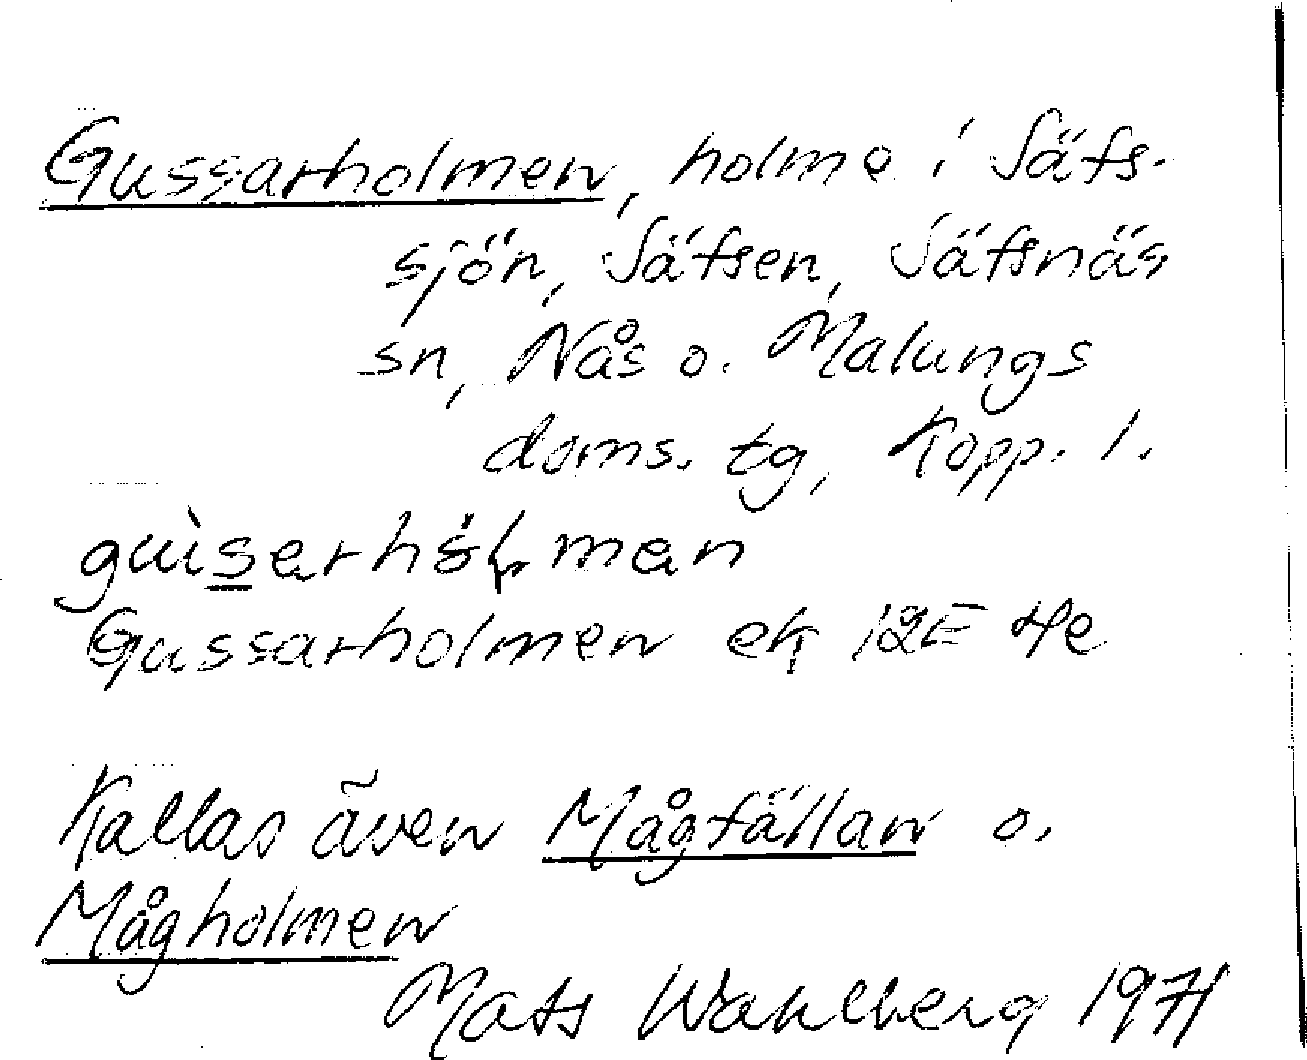 Gussarholmen, holme i Säfs-
sjön, Säfsen, Säfsnäs
sn, Nås o. Malungs
doms. tg, Kopp. l.
Gussarholmen ek 12E 4e
Kallas även Mågfällan o.
Mågholmen
Mats Wahlberg 1971